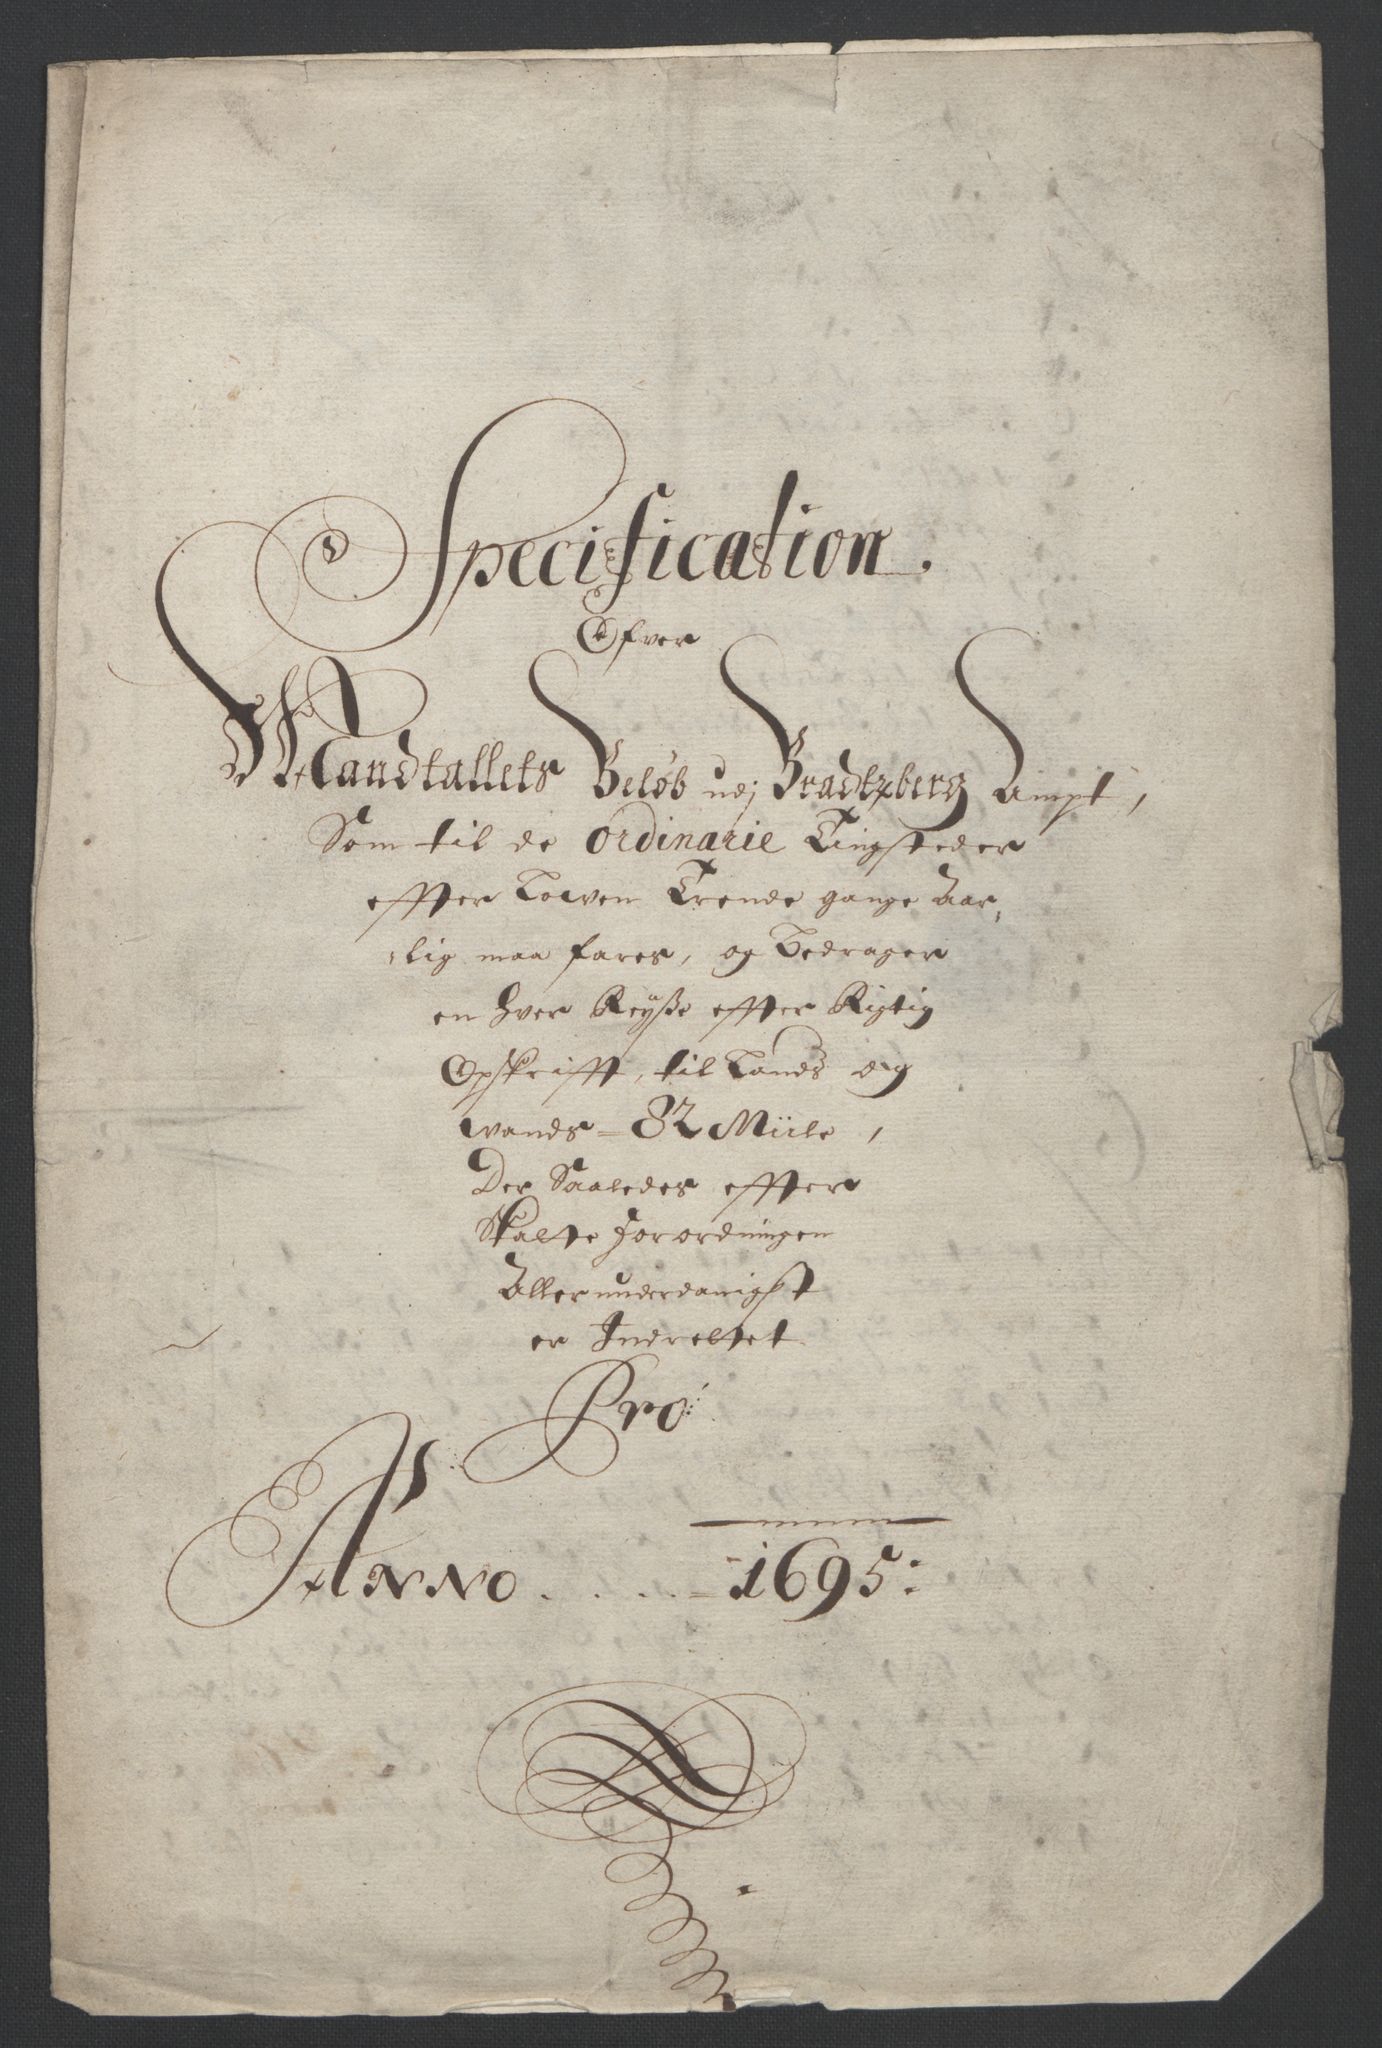 Specification.
Ofver
Mandtallets Beløb udj Bradtzberg Ampt,
Som til de ordinarie Tingsteder
effter Lowen Trende gange Aar,
lig maa fares, og Bedrager
en hver Reyße effter Rigtig
Opskrifft, til Lands og
wands = 82 Miile,
Der Saaledes effter
Skatte Forordningen
Allerunderdanigst
er Indrettet
Pro:
ANNO . . . . = 1695: